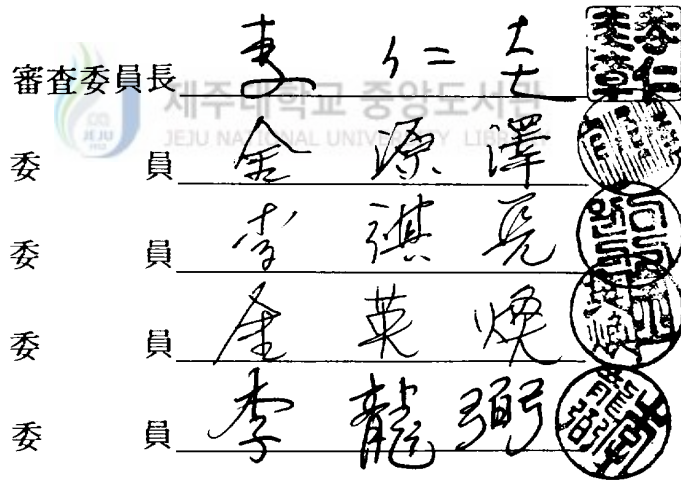 審査委員長 李 仁 吉
제주대학교 중앙도서관
JEJU NATIONAL UNIVERSITY LIBRARY
委 員 金 源 澤
委 員 李 祺 亮
委 員 金 英 煥
委 員 李 龍 弼